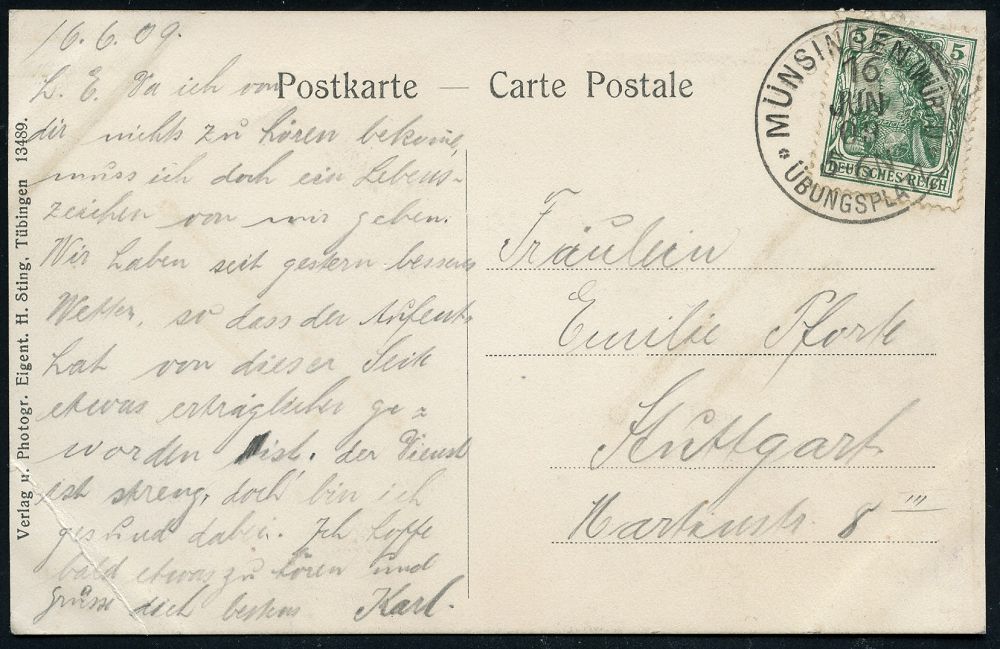 16.6.09.
Postkarte — Carte Postale
L. E. Da ich von
dir nichts zu hören bekome,
muss ich doch ein Lebens-
zeichen von mir geben.
Wir haben seit gestern besseres
Wetter, so dass der Aufent-
halt von dieser Seite
etwas erträglicher ge-
worden ist. der Dienst
ist streng, doch bin ich
gesund dabei. Ich hoffe
bald etwas zu hören und
grüsse dich bestens Karl.
Verlag u. Photogr. Eigent. H. Sting, Tübingen 13489.
MÜNSINGEN (WÜRTT)
16
JUN
09
ÜBUNGSPLA
5 5
DEUTSCHES REICH
Fräulein
Emilie
Stuttgart
8 III